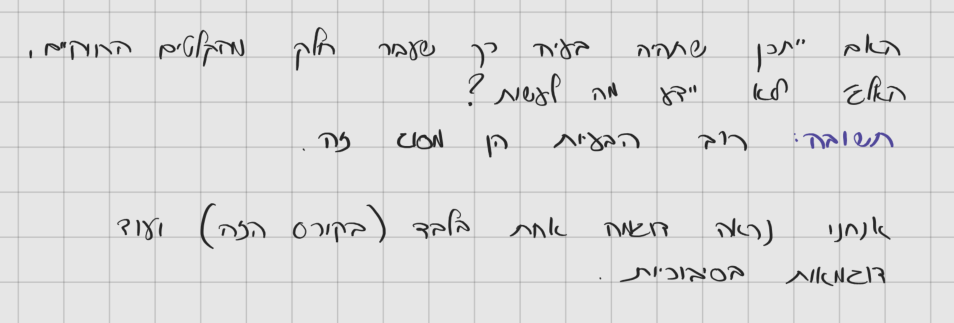 האם ייתכן שתהיה בעיה כך שעבור חלק מהקלטים החוקיים,
האלג לא יידע מה לעשות?
תשובה: רוב הבעיות הן מסוג זה.
אנחנו נראה דוגמה אחת בלבד (בקורס הזה) ועוד
דוגמאות בסיבוכיות.